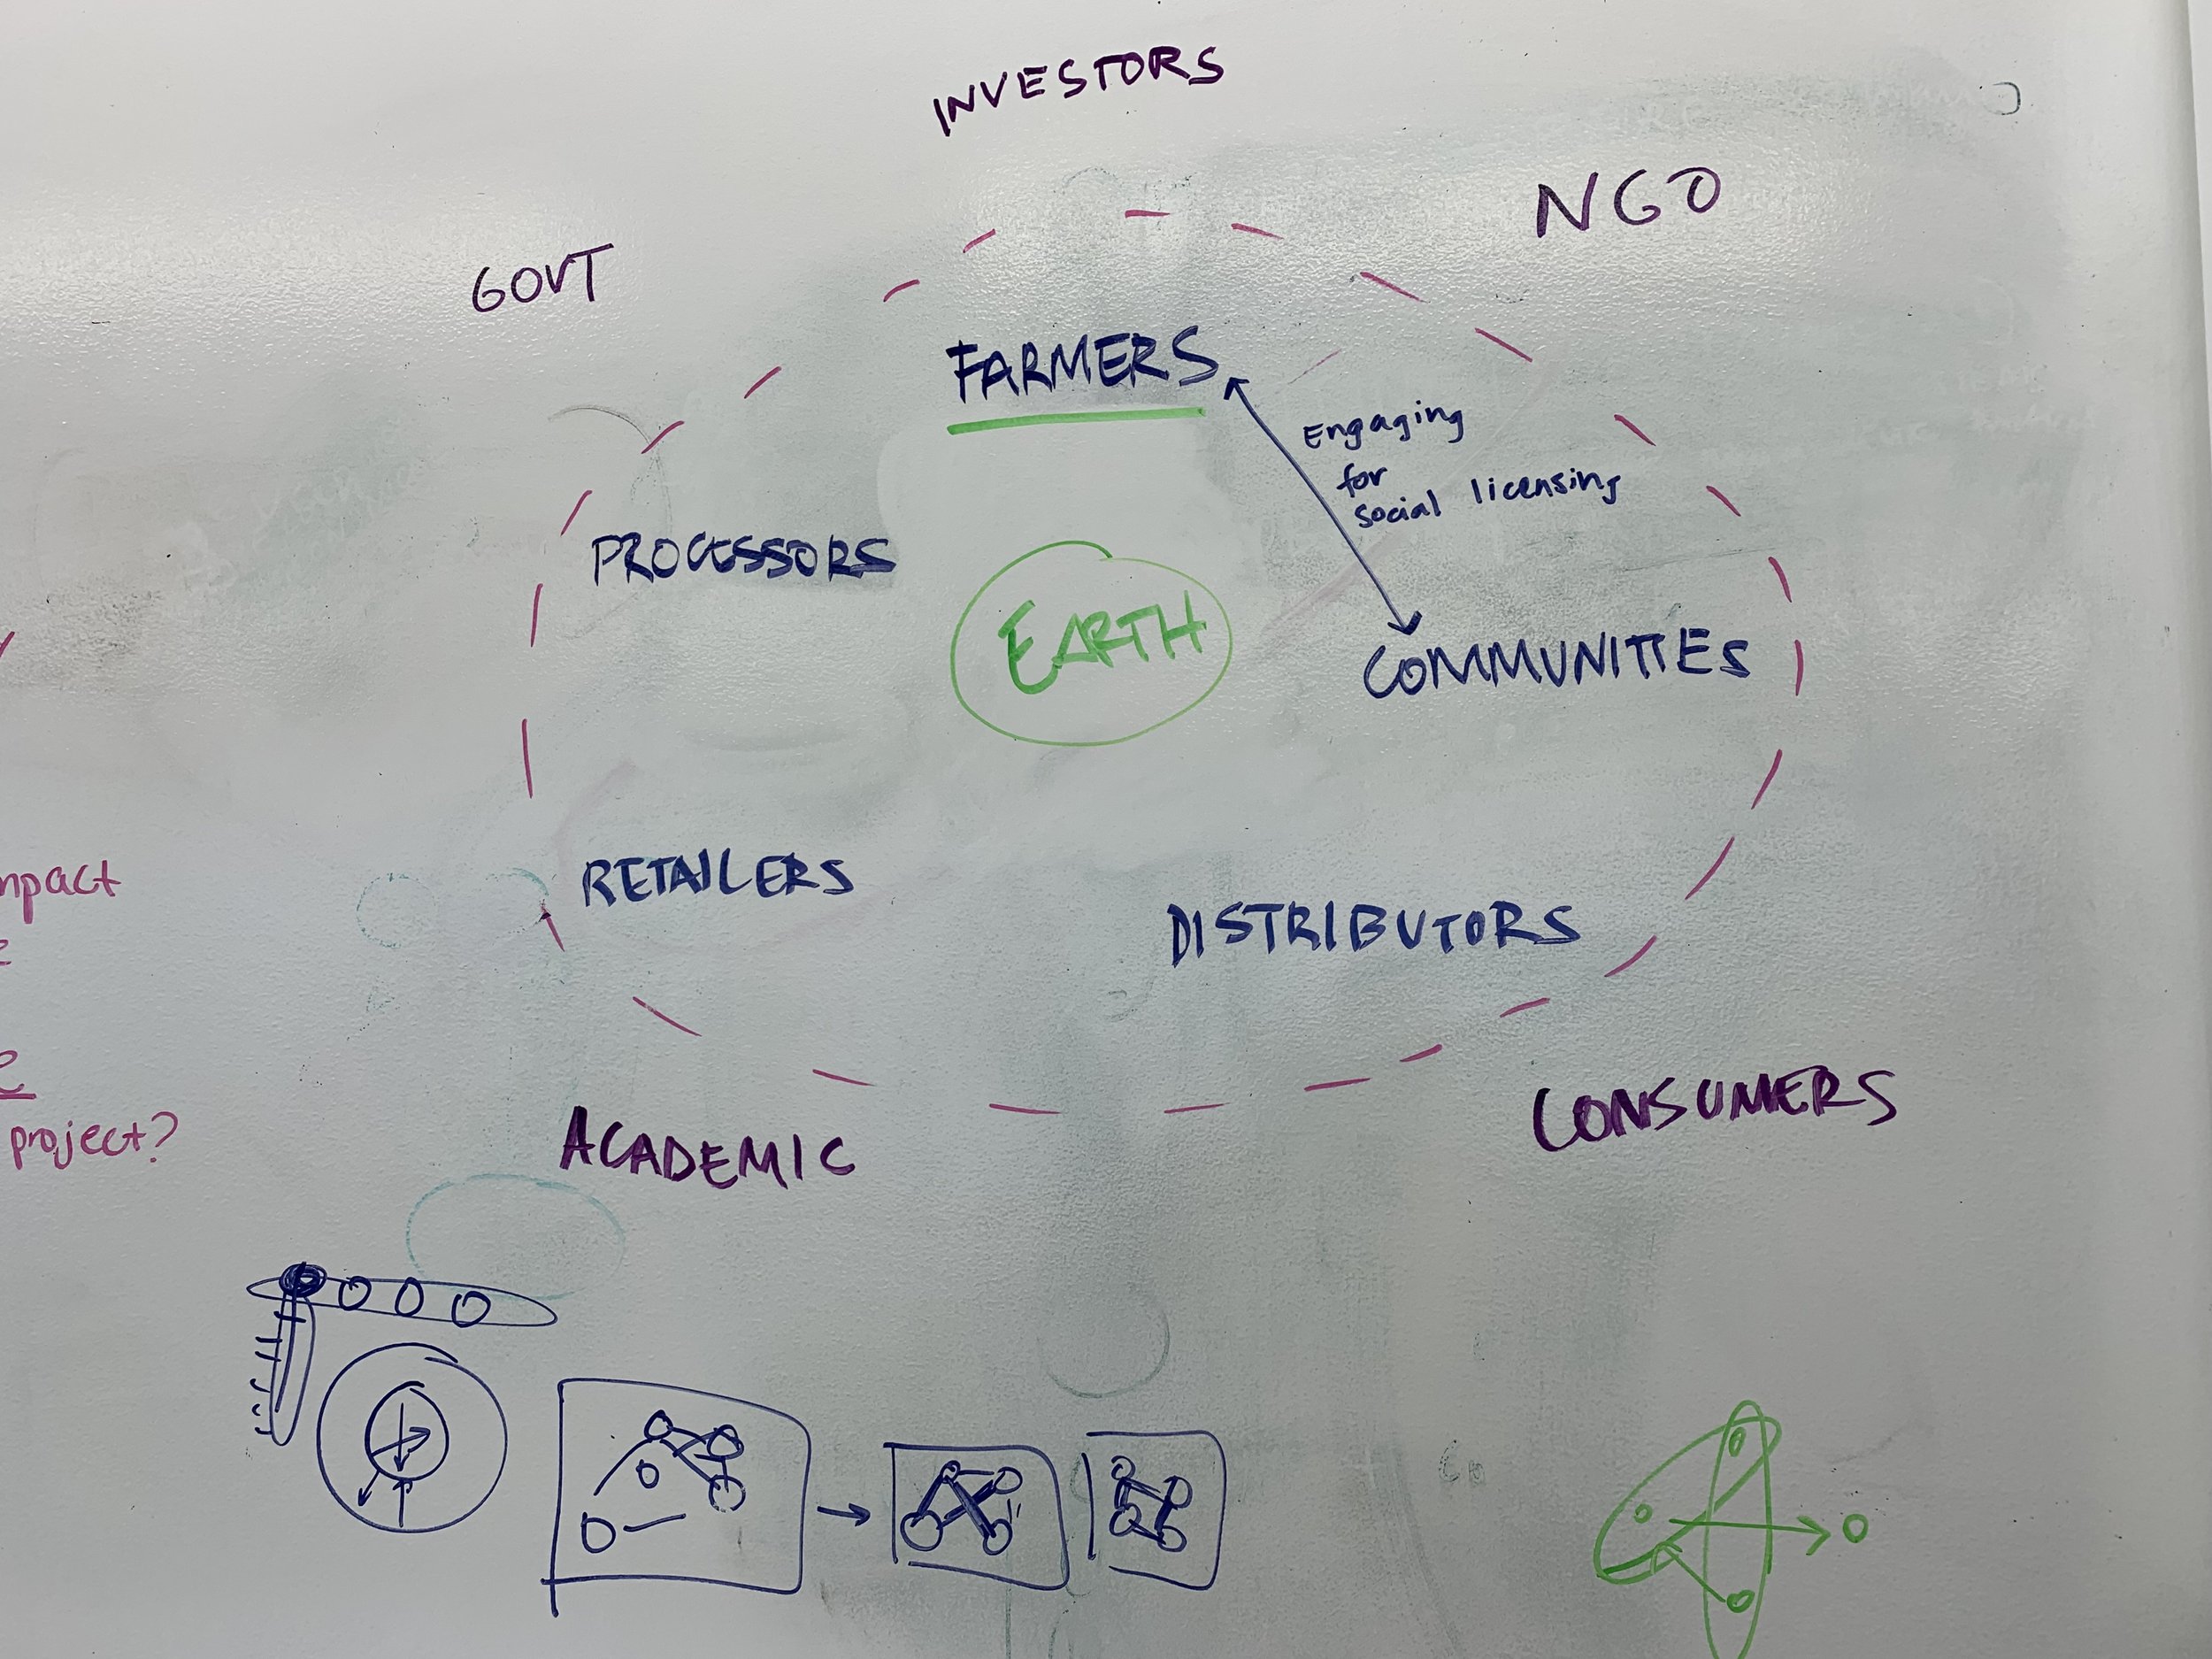 INVESTORS
NGO
GOVT
FARMERS
Engaging
for
social licensing
PROCESSORS
EARTH
COMMUNITIES
RETAILERS
DISTRIBUTORS
CONSUMERS
ACADEMIC
mpact
project?